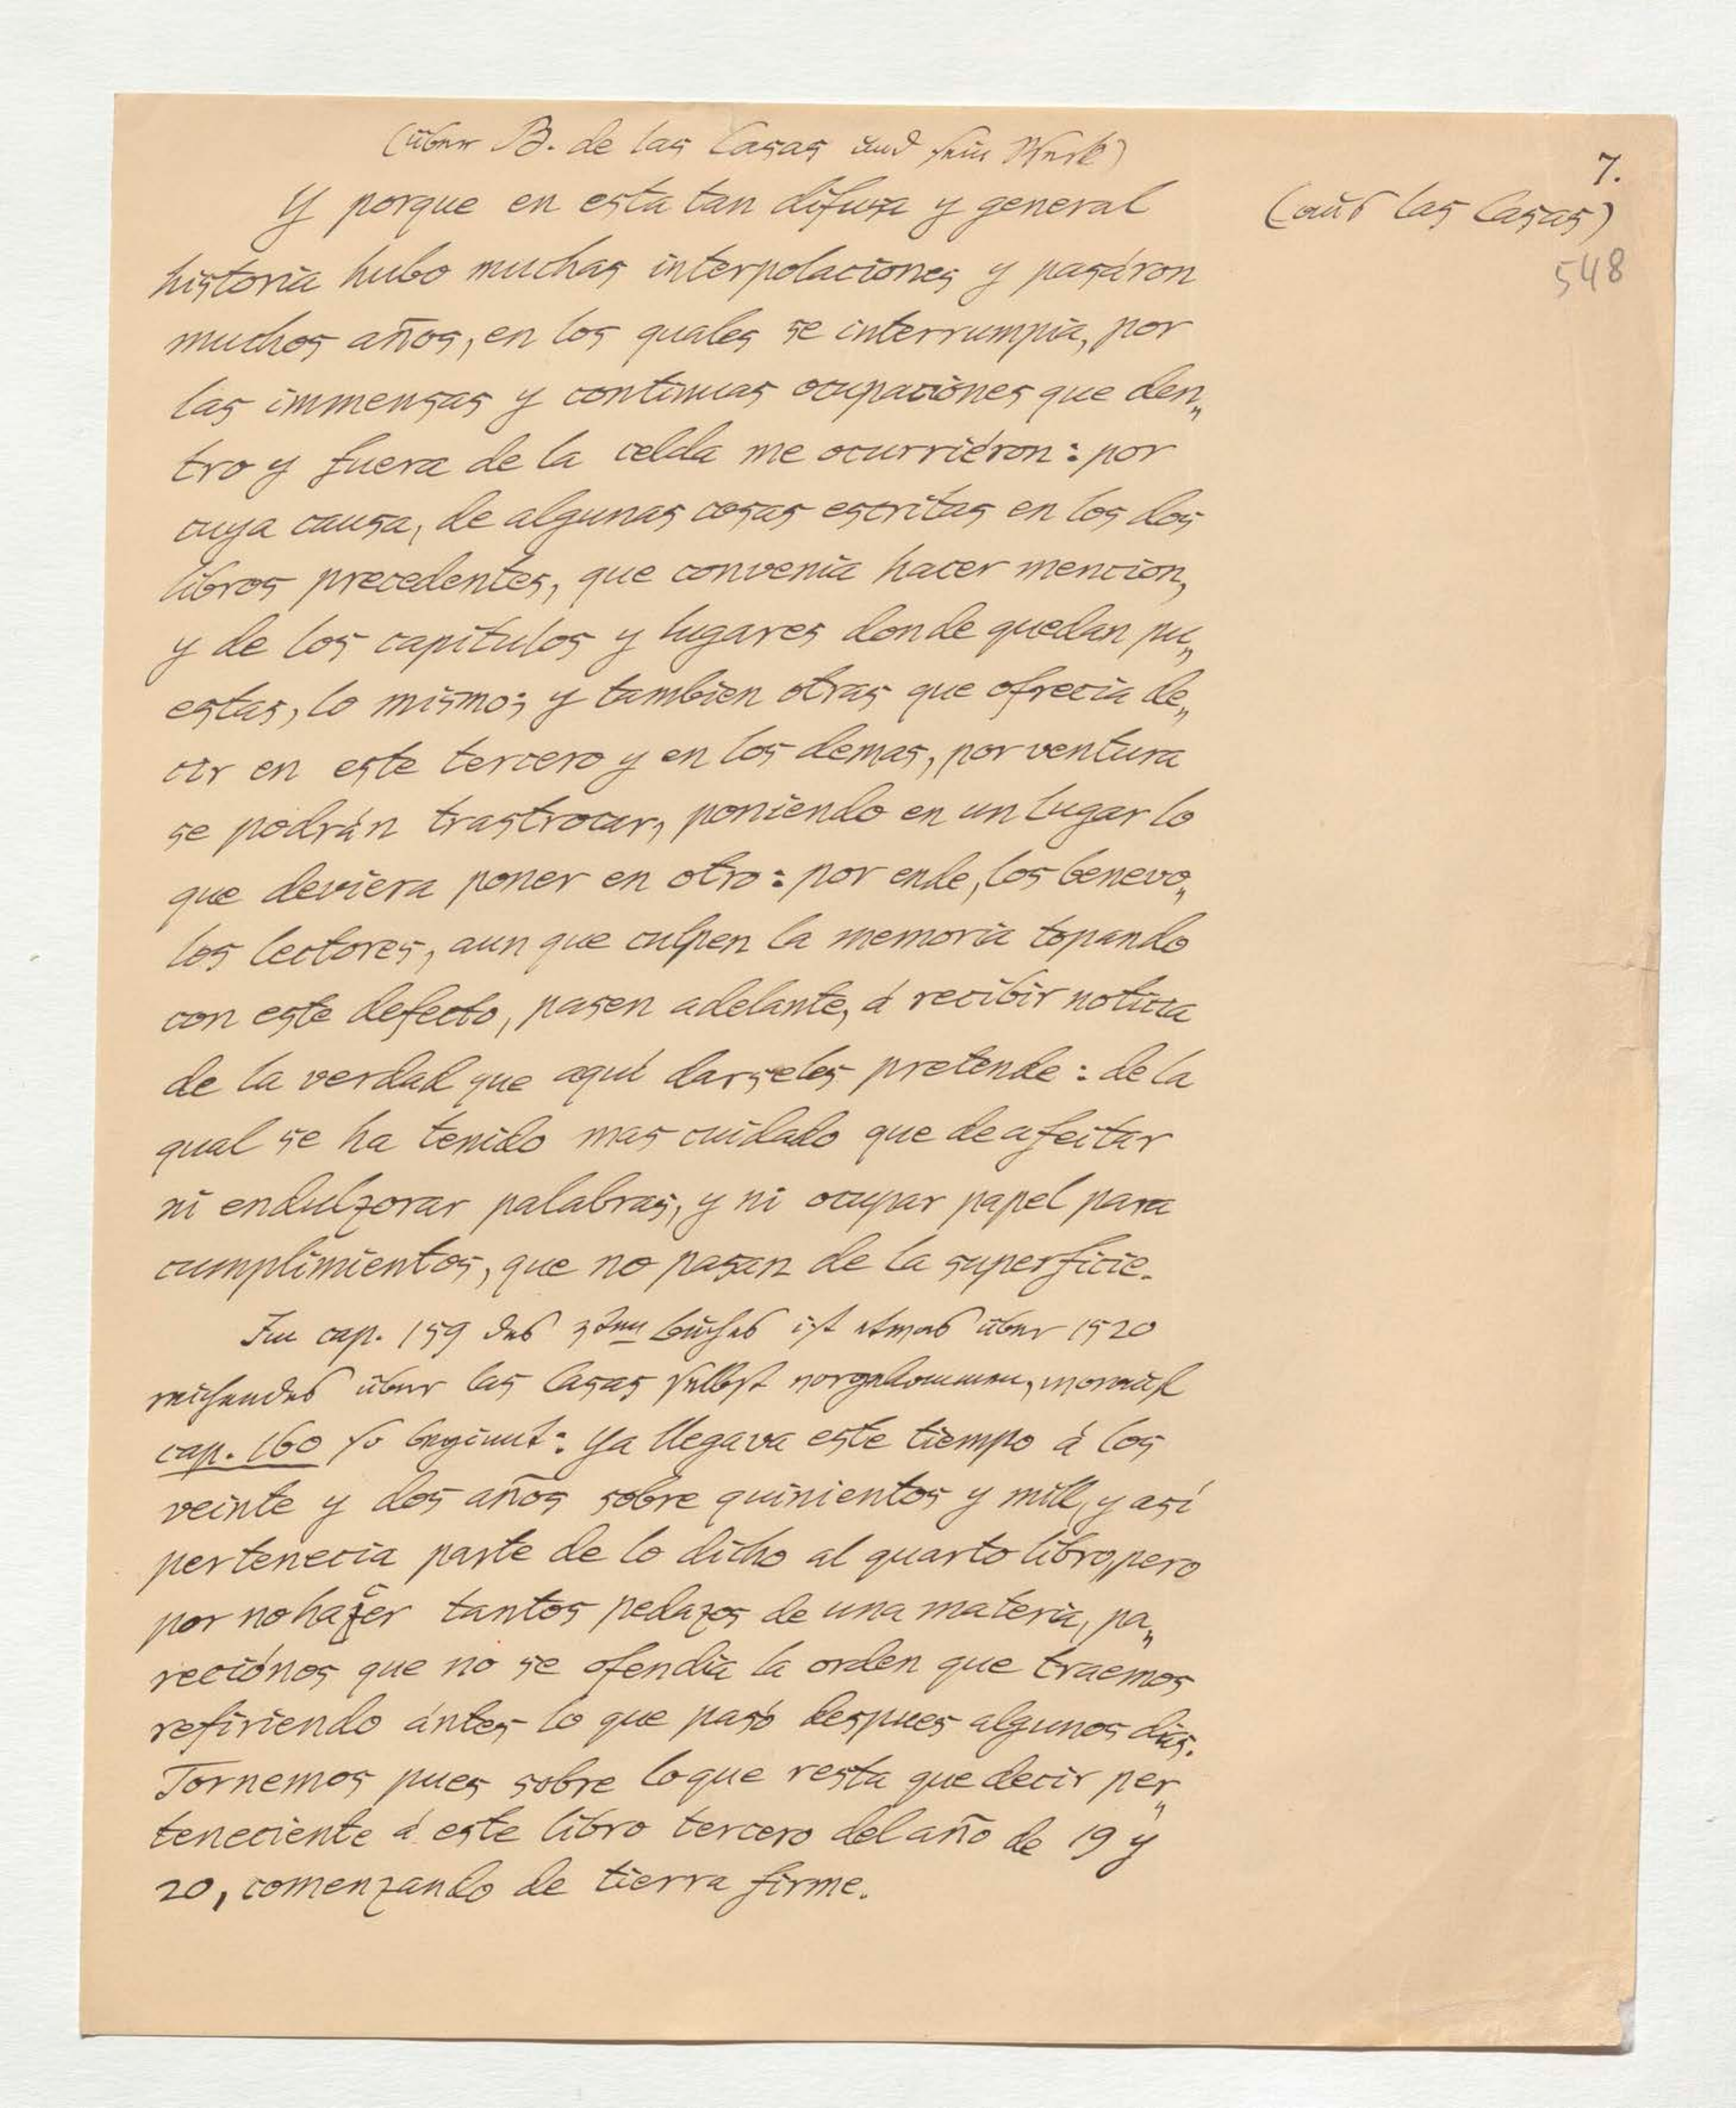 (über B. de las Casas und sein Werk)
7.
(aus las Casas)
548
Y porque en esta tan difusa y general
historia hubo muchas interpolaciones y pasáron
muchos años, en los quales se interrumpia, por
las immensas y continuas ocupaciones que den„
tro y fuera de la celda me ocurriéron: por
cuya causa, de algunas cosas escritas en los dos
libros precedentes, que convenia hacer mencion,
y de los capítulos y lugares donde quedan pu„
estas, lo mismo; y tambien otras que ofrecia de„
cir en este tercero y en los demas, por ventura
se podrán trastrocar, poniendo en un lugar lo
que deviera poner en otro: por ende, los benevo„
los lectores, aun que culpen la memoria topando
con este defecto, pasen adelante, á recibir noticia
de la verdad que aqui darseles pretende: de la
qual se ha tenido mas cuidado que de afeitar
ni endulzorar palabras, y ni ocupar papel para
cumplimientos, que no pasan de la superficie.
Im cap. 159 des 3ten Buches ist etwas über 1520
reichendes über las Casas selbst vorgekommen, worauf
cap. 160 so beginnt: Ya llegava este tiempo á los
veinte y dos años sobre quinientos y mill, y así
pertenecia parte de lo dicho al quarto libro, pero
por no hazer tantos pedazos de una materia, pa„
reciónos que no se ofendia la orden que traemos
refiriendo ántes lo que pasó despues algunos dias.
Tornemos pues sobre lo que resta que decir per„
teneciente á este libro tercero del año de 19 y
20, comenzando de tierra firme.